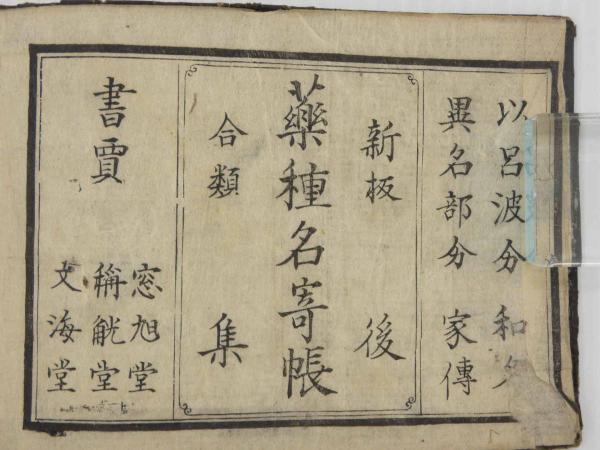 以呂波分 和名
異名部分 家傳
新板 後
藥種名寄帳
合類 集
書賈
窓旭堂
稱觥堂
文海堂